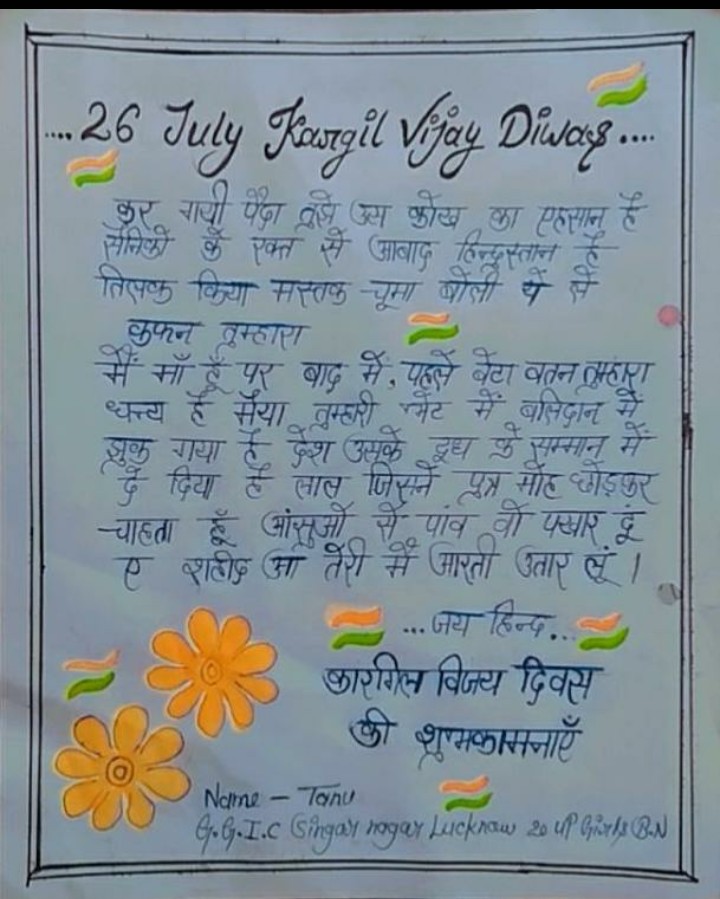 .... 26 July Kargil Vijay Diwas ....
कर गयी पैदा तुझे उस कोख का एहसान है
सैनिकों के रक्त से आबाद हिन्दुस्तान है
तिलक किया मस्तक चूमा बोली ये ले
कफन तुम्हारा
मैं माँ हूँ पर बाद में, पहले बेटा वतन तुम्हारा
धन्य है मैया तुम्हारी भेंट में बलिदान में
झुक गया है देश उसके दूध के सम्मान में
दे दिया है लाल जिसने पुत्र मोह छोड़कर
चाहता हूँ आंसुओं से पांव वो पखार दूं
ए शहीद आ तेरी मैं आरती उतार लूं ।
... जय हिन्द...
कारगिल विजय दिवस
की शुभकामनाएँ
Name - Tanu
G.G.I.C Singar nagar Lucknow 20 UP Girls (B.N)